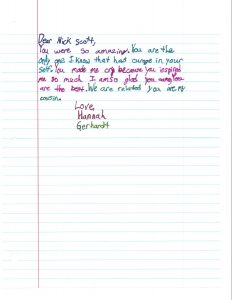 Dear Nick Scott,
You were so amazing. You are the
only one I know that had in your
self. You made me cry because you inspired
me so much. I am so glad you
are the best. We are related you are my
cousin.
Love,
Hannah
Gerhardt